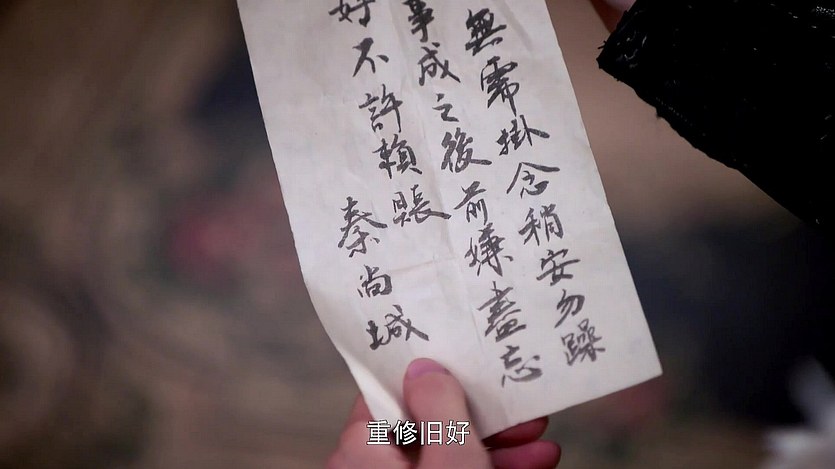 無需掛念稍安勿躁
事成之後前嫌盡忘
好不許賴賬
秦尚城
重修旧好